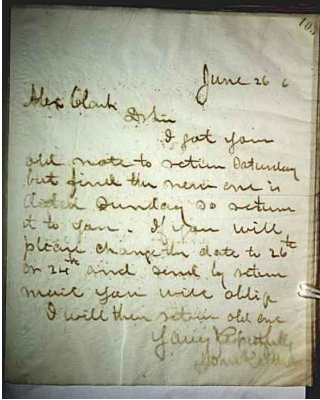 103
June 26 6
Alex Clark
D Sir
I got your
old note to return Saturday
but find the new one is
dated Sunday so return
it to you. If you will
please change the date to 26th
or 24th and send by return
mail you will oblige
I will then return old one
Yours Respectfully
John